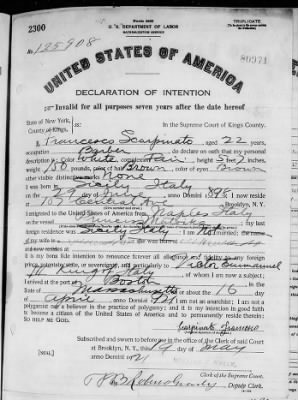 Form 2202
TRIPLICATE
2300
U. S. DEPARTMENT OF LABOR
NATURALIZATION SERVICE
No. 125908
UNITED STATES OF AMERICA
DECLARATION OF INTENTION
Invalid for all purposes seven years after the date hereof
State of New York,
County of Kings,
In the Supreme Court of Kings County.
I, Francesco Scarpinato, aged 22 years,
occupation Barber, do declare on oath that my personal
description is: Color White, complexion Fair, height 5 feet 2 inches,
weight 130 pounds, color of hair Brown, color of eyes Brown
other visible distinctive marks None
I was born in Sicily Italy
on the day of June, anno Domini 189; I now reside
at 107 Central Ave, Brooklyn, N.Y.
I emigrated to the United States of America from Naples Italy
on the vessel; my last
foreign residence was Sicily Italy. I am Not
It is my bona fide intention to renounce forever all allegiance and fidelity to any foreign
prince, potentate, state, or sovereignty, and particularly to Victor Emmanuel
III King of Italy, of whom I am now a subject;
I arrived at the port of Boston, in the
State of Massachusetts, on or about the 16 day
of April, anno Domini; I am not an anarchist; I am not a
polygamist nor a believer in the practice of polygamy; and it is my intention in good faith
to become a citizen of the United States of America and to permanently reside therein:
SO HELP ME GOD.
Subscribed and sworn to before me in the office of the Clerk of said Court
at Brooklyn, N.Y., this 19 day of May
anno Domini 1921
[SEAL]
Clerk of the Supreme Court.
Deputy Clerk.